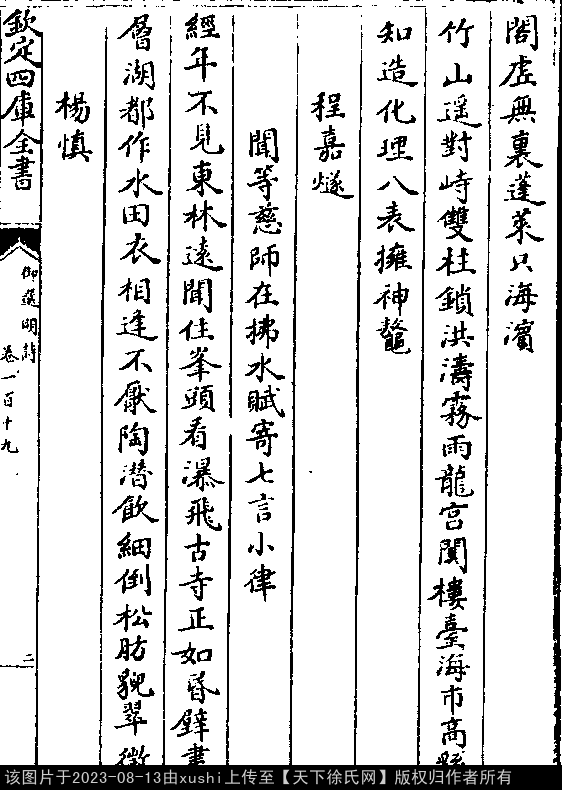 閣虛無裏蓬萊只海濱
竹山遥對峙雙柱鎖洪濤霧雨龍宮闃樓臺海市高
知造化理八表擁神鼇
程嘉燧
聞等慈師在拂水賦寄七言小律
經年不見東林遠聞住峯頭看瀑飛古寺正如昏壁畫
層湖都作水田衣相逢不厭陶潛飲細倒松肪貌翠微
楊慎
欽定四庫全書
御選明詩
卷一百十九
二
该图片于2023-08-13由xushi上传至【天下徐氏网】版权归作者所有